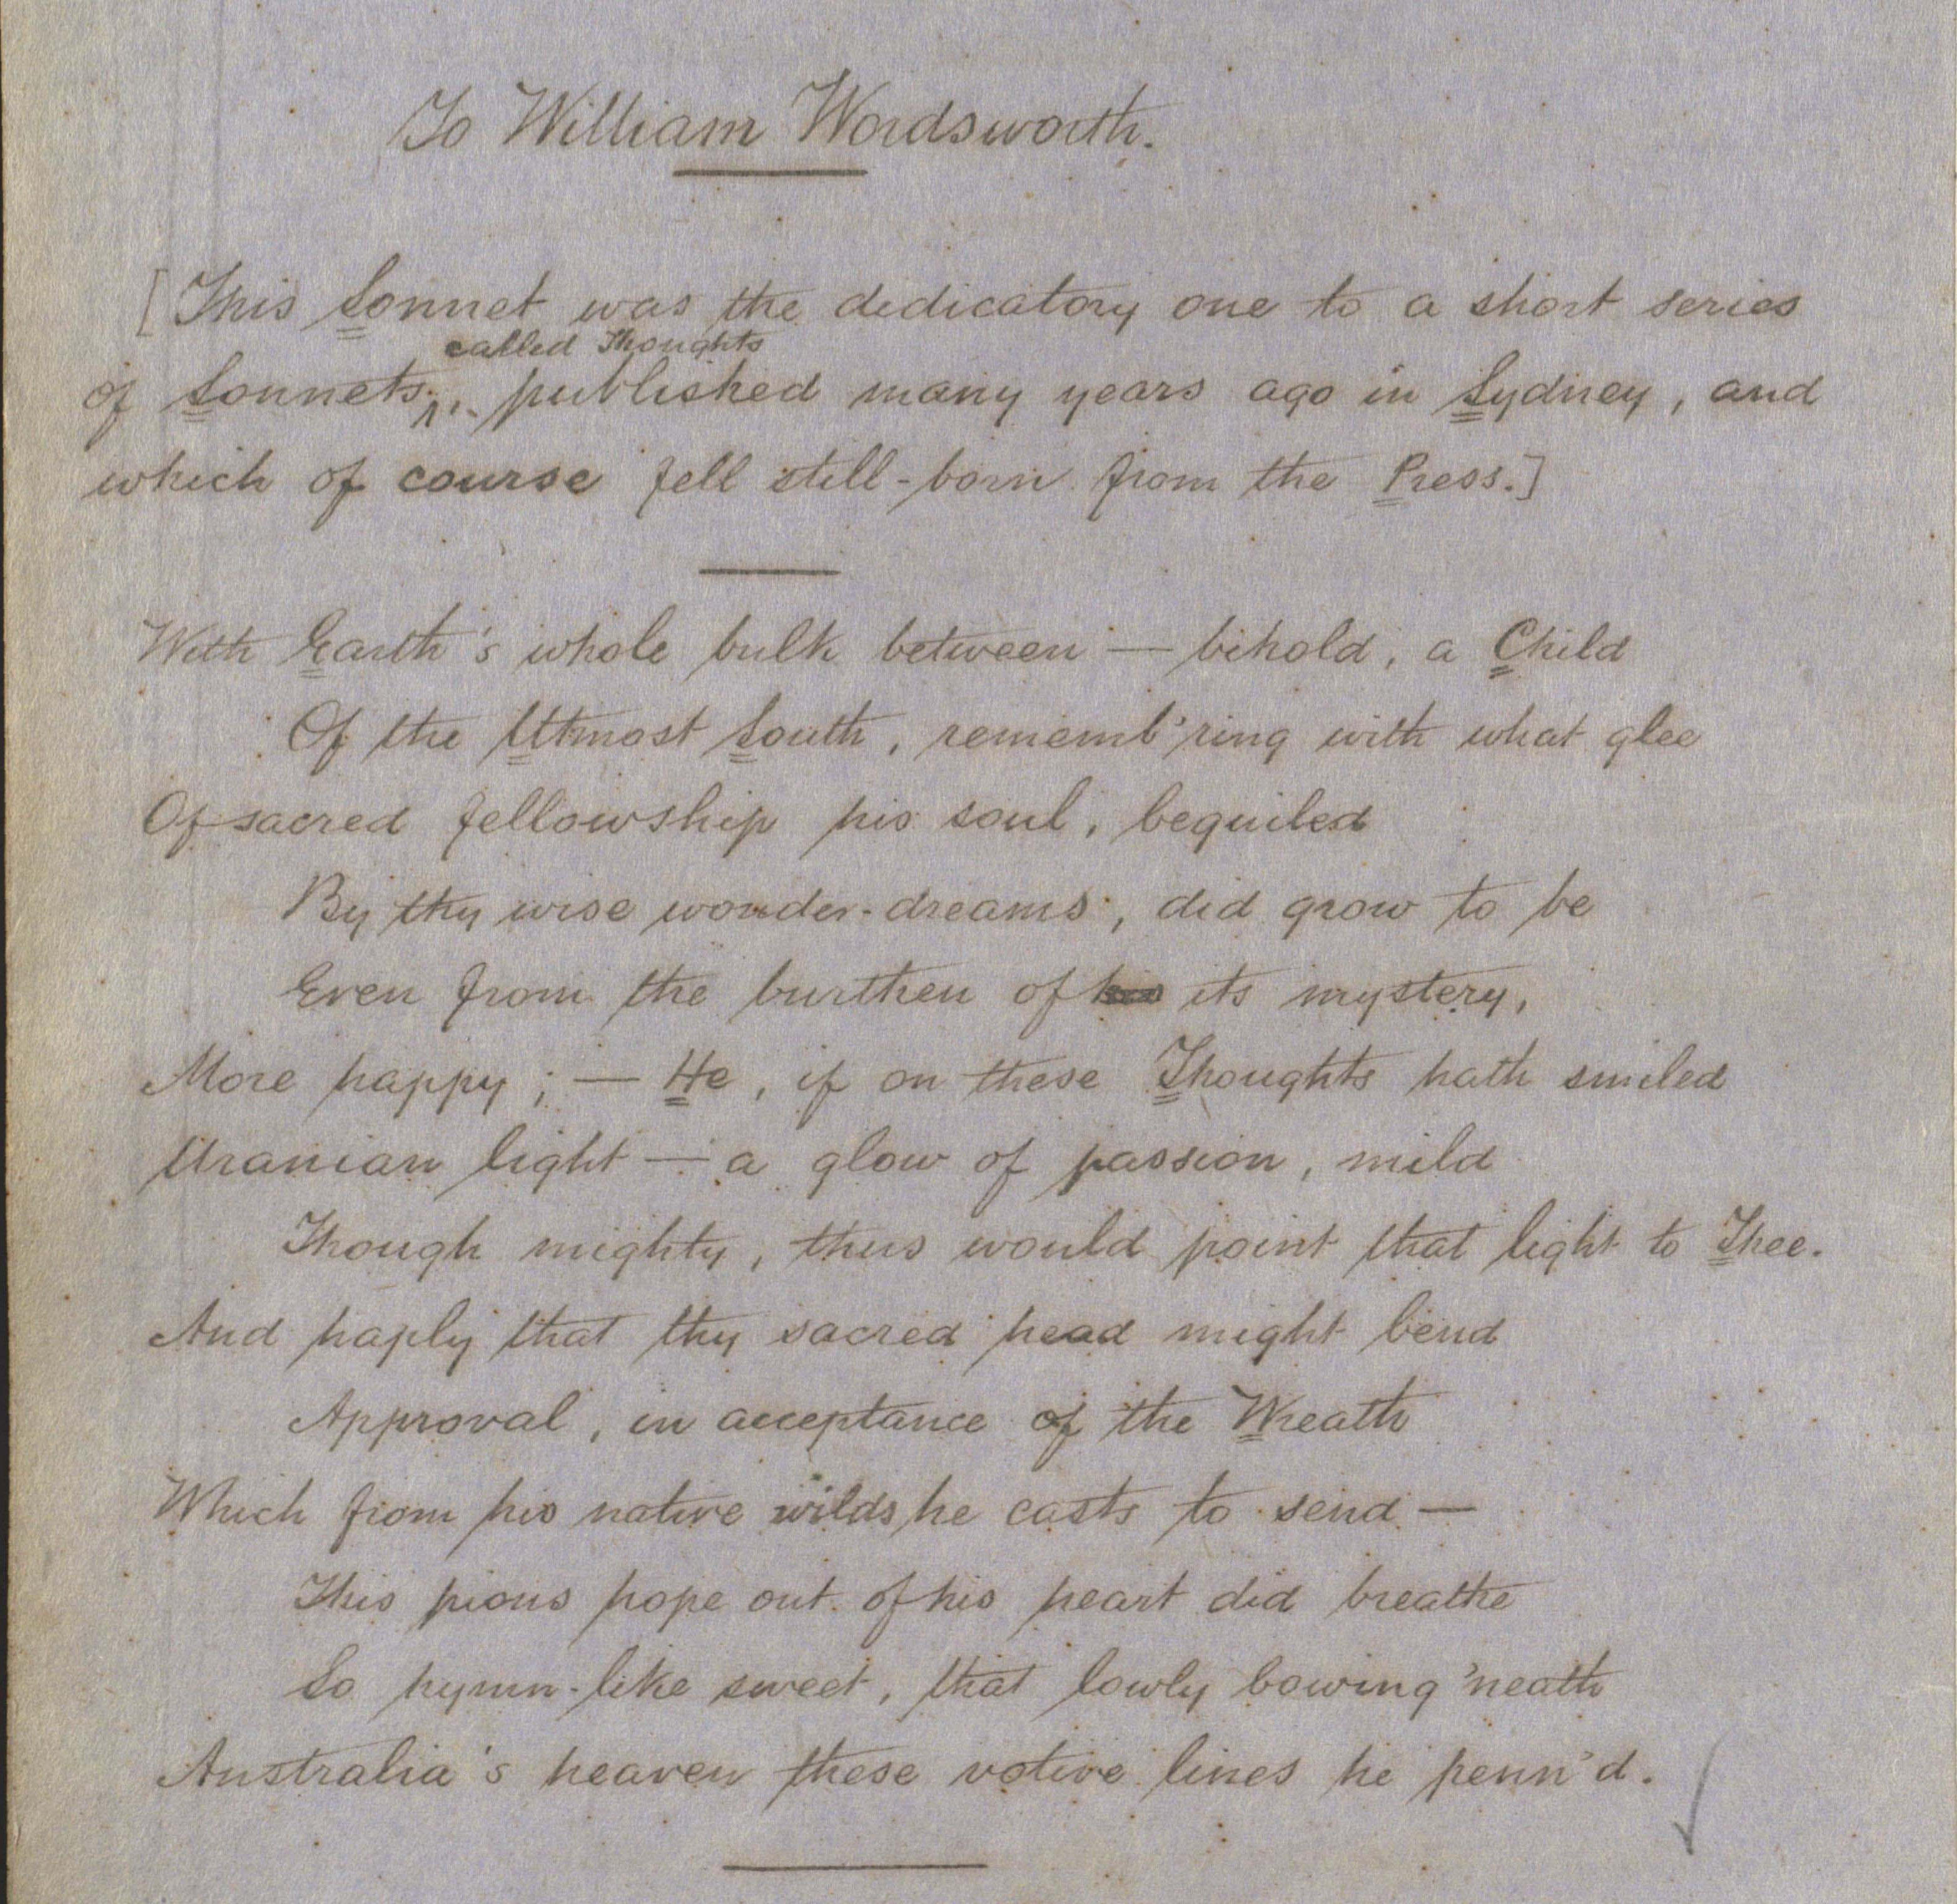 To William Wordsworth.
[This Sonnet was the dedicatory one to a short series
called Thoughts
of Sonnets, published many years ago in Sydney, and
which of course fell still-born from the Press.]
With Earth's whole bulk between — behold, a Child
Of the Utmost South, rememb'ring with what glee
Of sacred fellowship his soul, beguiled
By thy wise wonder-dreams, did grow to be
Even from the burthen of its mystery,
More happy; — He, if on these Thoughts hath smiled
Uranian light — a glow of passion, mild
Though mighty, thus would point that light to Thee.
And haply that thy sacred head might bend
Approval, in acceptance of the Wreath
Which from his native wilds he casts to send —
This pious hope out of his heart did breathe
So hymn-like sweet, that lowly bowing 'neath
Australia's heaven these votive lines he penn'd.